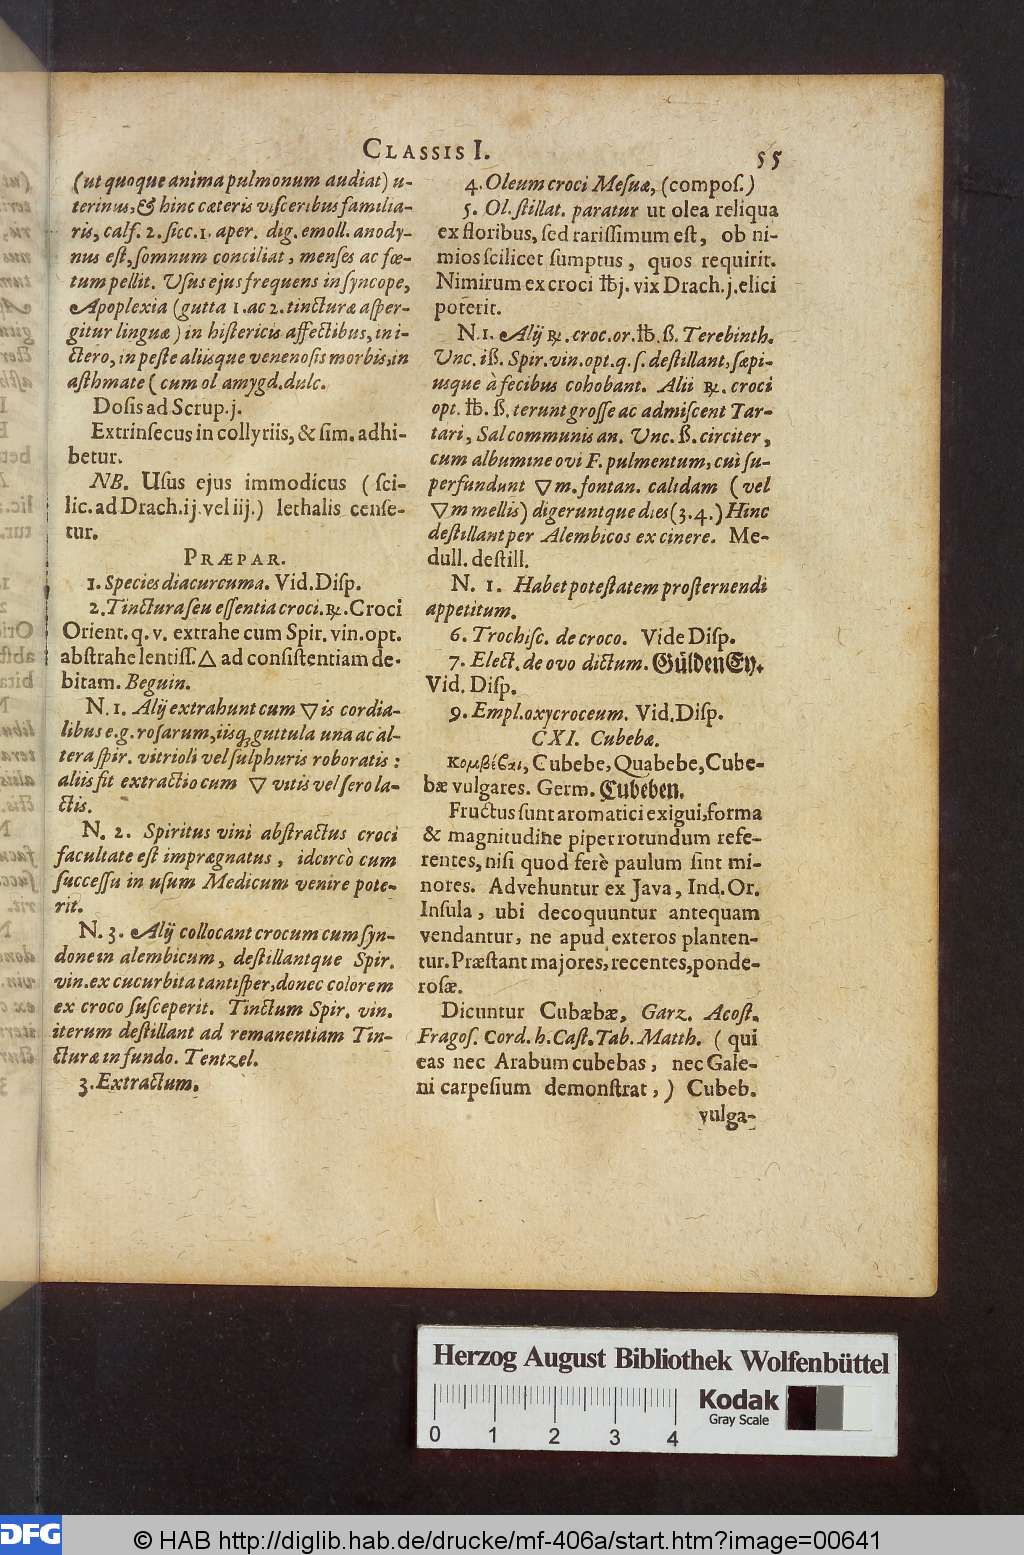 CLASSIS I. 55
(ut quoque anima pulmonum audiat) u-
terinus, & hinc cæteris visceribus familia-
ris, calf. 2. sicc. 1. aper. dig. emoll. anody-
nus est, somnum conciliat, menses ac fœ-
tum pellit. Usus ejus frequens in syncope,
Apoplexia (gutta 1. ac 2. tincturæ asper-
gitur linguæ) in histericis affectibus, in i-
ctero, in peste aliisque venenosis morbis, in
asthmate (cum ol amygd. dulc.
Dosis ad Scrup. j.
Extrinsecus in collyriis, & sim. adhi-
betur.
NB. Usus ejus immodicus (sci-
lic. ad Drach. ij. vel iij.) lethalis cense-
tur.
PRÆPAR.
1. Species diacurcuma. Vid. Disp.
2. Tinctura seu essentia croci. ℞. Croci
Orient. q. v. extrahe cum Spir. vin. opt.
abstrahe lentiss. △ ad consistentiam de-
bitam. Beguin.
N. 1. Alij extrahunt cum ▽ is cordia-
libus e. g. rosarum, iisq; guttula una ac al-
tera spir. vitrioli vel sulphuris roboratis:
aliis fit extractio cum ▽ vitis vel sero la-
ctis.
N. 2. Spiritus vini abstractus croci
facultate est imprægnatus, idcircò cum
successu in usum Medicum venire pote-
rit.
N. 3. Alij collocant crocum cum syn-
done in alembicum, destillantque Spir.
vin. ex cucurbita tantisper, donec colorem
ex croco susceperit. Tinctum Spir. vin.
iterum destillant ad remanentiam Tin-
cturæ in fundo. Tentzel.
3. Extractum.
4. Oleum croci Mesuæ, (compos.)
5. Ol. stillat. paratur ut olea reliqua
ex floribus, sed rarissimum est, ob ni-
mios scilicet sumptus, quos requirit.
Nimirum ex croci ℔j. vix Drach. j. elici
poterit.
N. 1. Alij ℞. croc. or. ℔. ß. Terebinth.
Unc. iß. Spir. vin. opt. q. s. destillant, sæpi-
usque à fecibus cohobant. Alii ℞. croci
opt. ℔. ß. terunt grosse ac admiscent Tar-
tari, Sal communis an. Unc. ß. circiter,
cum albumine ovi F. pulmentum, cui su-
perfundunt ▽ m. fontan. calidam (vel
▽ m mellis) digeruntque dies (3. 4.) Hinc
destillant per Alembicos ex cinere. Me-
dull. destill.
N. 1. Habet potestatem prosternendi
appetitum.
6. Trochisc. de croco. Vide Disp.
7. Elect. de ovo dictum. Gülden Ey.
Vid. Disp.
9. Empl. oxycroceum. Vid. Disp.
CXI. Cubebæ.
Κομβέβαι, Cubebe, Quabebe, Cube-
bæ vulgares. Germ. Cubeben.
Fructus sunt aromatici exigui, forma
& magnitudine piper rotundum refe-
rentes, nisi quod ferè paulum sint mi-
nores. Advehuntur ex Java, Ind. Or.
Insula, ubi decoquuntur antequam
vendantur, ne apud exteros planten-
tur. Præstant majores, recentes, ponde-
rosæ.
Dicuntur Cubæbæ, Garz. Acost.
Fragos. Cord. h. Cast. Tab. Matth. (qui
eas nec Arabum cubebas, nec Gale-
ni carpesium demonstrat,) Cubeb.
vulga-
Herzog August Bibliothek Wolfenbüttel
Kodak
Gray Scale
0 1 2 3 4
DFG
© HAB http://diglib.hab.de/drucke/mf-406a/start.htm?image=00641